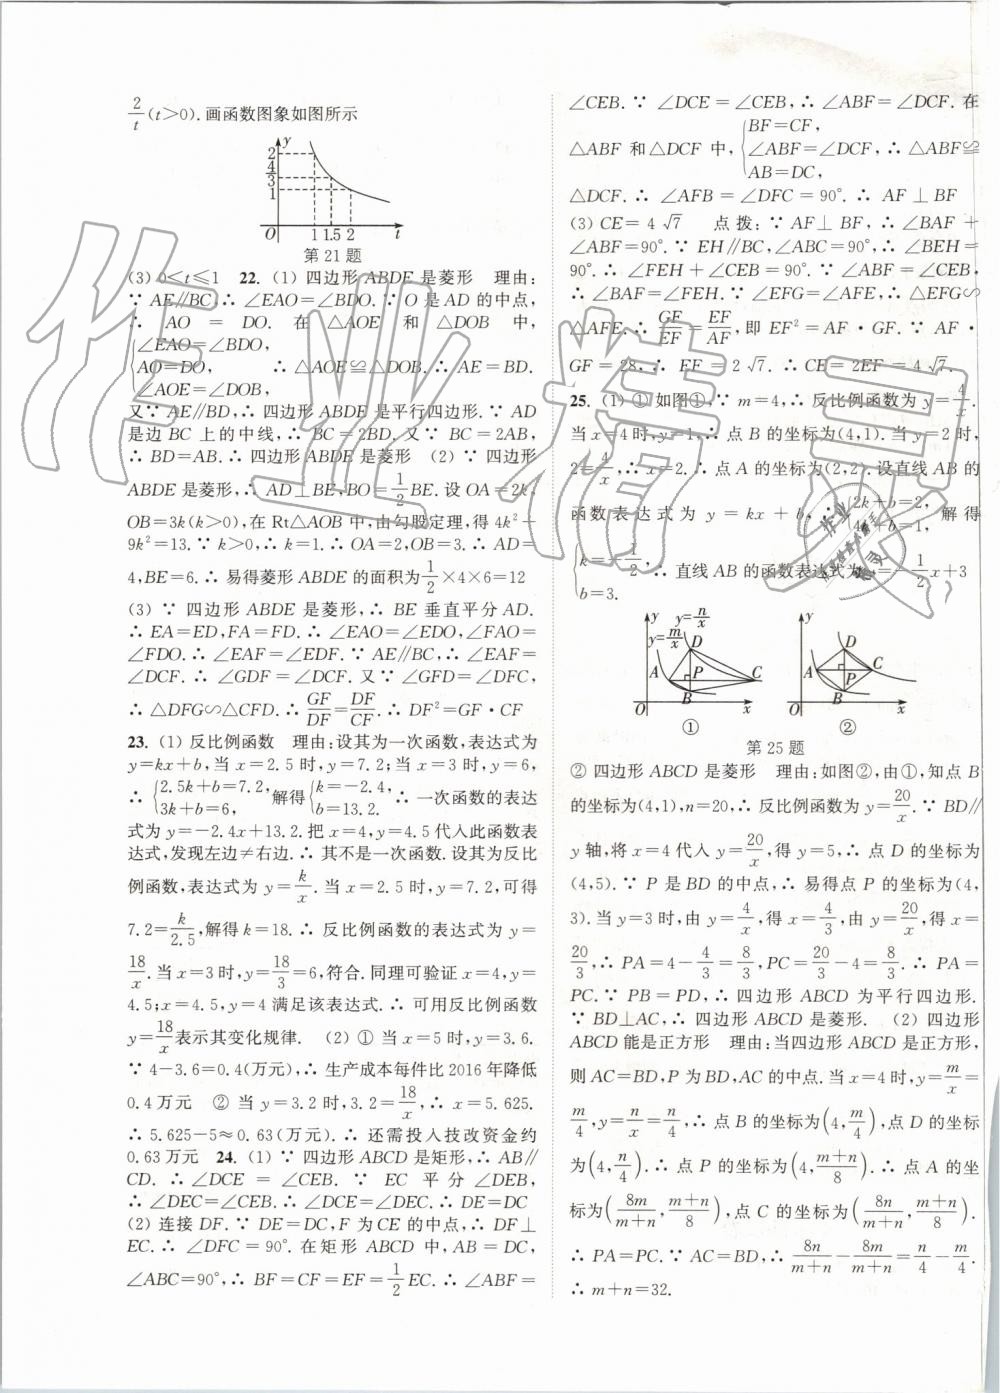 2/t(t>0).画函数图象如图所示
y
2
4/3
1
O 1 1.5 2 t
第 21 题
(3) 0<t≤1 22. (1) 四边形 ABDE 是菱形 理由:
∵ AE∥BC,∴ ∠EAO=∠BDO.∵ O 是 AD 的中点,
∴ AO = DO. 在 △AOE 和 △DOB 中,
{∠EAO=∠BDO,
AO=DO, ∴ △AOE≌△DOB.∴ AE=BD.
∠AOE=∠DOB,
又∵ AE∥BD,∴ 四边形 ABDE 是平行四边形.∵ AD
是边 BC 上的中线,∴ BC=2BD.又∵ BC=2AB,
∴ BD=AB.∴ 四边形 ABDE 是菱形 (2) ∵ 四边形
ABDE 是菱形,∴ AD⊥BE,BO=1/2BE.设 OA=2k,
OB=3k(k>0),在 Rt△AOB 中,由勾股定理,得 4k²+
9k²=13.∵ k>0,∴ k=1.∴ OA=2,OB=3.∴ AD=
4,BE=6.∴ 易得菱形 ABDE 的面积为1/2×4×6=12
(3) ∵ 四边形 ABDE 是菱形,∴ BE 垂直平分 AD.
∴ EA=ED,FA=FD.∴ ∠EAO=∠EDO,∠FAO=
∠FDO.∴ ∠EAF=∠EDF.∵ AE∥BC,∴ ∠EAF=
∠DCF.∴ ∠GDF=∠DCF.又∵ ∠GFD=∠DFC,
∴ △DFG∽△CFD.∴ GF/DF=DF/CF.∴ DF²=GF·CF
23. (1) 反比例函数 理由:设其为一次函数,表达式为
y=kx+b,当 x=2.5 时,y=7.2;当 x=3 时,y=6,
∴ {2.5k+b=7.2, 3k+b=6, 解得{k=-2.4, b=13.2. ∴ 一次函数的表达
式为 y=-2.4x+13.2.把 x=4,y=4.5 代入此函数表
达式,发现左边≠右边.∴ 其不是一次函数.设其为反比
例函数,表达式为 y=k/x.当 x=2.5 时,y=7.2,可得
7.2=k/2.5,解得 k=18.∴ 反比例函数的表达式为 y=
18/x.当 x=3 时,y=18/3=6,符合.同理可验证 x=4,y=
4.5;x=4.5,y=4 满足该表达式.∴ 可用反比例函数
y=18/x表示其变化规律. (2) ① 当 x=5 时,y=3.6.
∵ 4-3.6=0.4(万元),∴ 生产成本每件比 2016 年降低
0.4 万元 ② 当 y=3.2 时,3.2=18/x,∴ x=5.625.
∴ 5.625-5≈0.63(万元).∴ 还需投入技改资金约
0.63 万元 24. (1) ∵ 四边形 ABCD 是矩形,∴ AB∥
CD. ∴ ∠DCE = ∠CEB. ∵ EC 平分 ∠DEB,
∴ ∠DEC=∠CEB.∴ ∠DCE=∠DEC.∴ DE=DC
(2) 连接 DF.∵ DE=DC,F 为 CE 的中点,∴ DF⊥
EC.∴ ∠DFC=90°.在矩形 ABCD 中,AB=DC,
∠ABC=90°,∴ BF=CF=EF=1/2EC.∴ ∠ABF=
∠CEB.∵ ∠DCE=∠CEB,∴ ∠ABF=∠DCF.在
{BF=CF,
△ABF 和△DCF 中, ∠ABF=∠DCF,∴ △ABF≌
AB=DC,
△DCF.∴ ∠AFB=∠DFC=90°.∴ AF⊥BF
(3) CE=4√7 点拨:∵ AF⊥BF,∴ ∠BAF+
∠ABF=90°.∵ EH∥BC,∠ABC=90°,∴ ∠BEH=
90°.∴ ∠FEH+∠CEB=90°.∵ ∠ABF=∠CEB,
∴ ∠BAF=∠FEH.∵ ∠EFG=∠AFE,∴ △EFG∽
△AFE.∴ GF/EF=EF/AF,即 EF²=AF·GF.∵ AF·
GF=28,∴ EF=2√7.∴ CE=2EF=4√7.
25. (1) ① 如图①,∵ m=4,∴ 反比例函数为 y=4/x.
当 x=4 时,y=1,∴ 点 B 的坐标为(4,1).当 y=2 时,
2=4/x,∴ x=2.∴ 点 A 的坐标为(2,2).设直线 AB 的
函数表达式为 y=kx+b,∴ {2k+b=2, 4k+b=1, 解得
{k=-1/2, b=3. ∴ 直线 AB 的函数表达式为 y=-1/2x+3
y y=n/x
y=m/x D
A P C
B
O x
①
y
D
A P C
B
O x
②
第 25 题
② 四边形 ABCD 是菱形 理由:如图②,由①,知点 B
的坐标为(4,1),n=20,∴ 反比例函数为 y=20/x.∵ BD∥
y 轴,将 x=4 代入 y=20/x,得 y=5,∴ 点 D 的坐标为
(4,5).∵ P 是 BD 的中点,∴ 易得点 P 的坐标为(4,
3).当 y=3 时,由 y=4/x,得 x=4/3,由 y=20/x,得 x=
20/3,∴ PA=4-4/3=8/3,PC=20/3-4=8/3.∴ PA=
PC.∵ PB=PD,∴ 四边形 ABCD 为平行四边形.
∵ BD⊥AC,∴ 四边形 ABCD 是菱形. (2) 四边形
ABCD 能是正方形 理由:当四边形 ABCD 是正方形,
则 AC=BD,P 为 BD,AC 的中点.当 x=4 时,y=m/x=
m/4,y=n/x=n/4,∴ 点 B 的坐标为(4,m/4),点 D 的坐标
为(4,n/4).∴ 点 P 的坐标为(4,(m+n)/8).∴ 点 A 的坐
标为(8m/(m+n),(m+n)/8),点 C 的坐标为(8n/(m+n),(m+n)/8).
∴ PA=PC.∵ AC=BD,∴ 8n/(m+n)-8m/(m+n)=n/4-m/4.
∴ m+n=32.
作业精灵